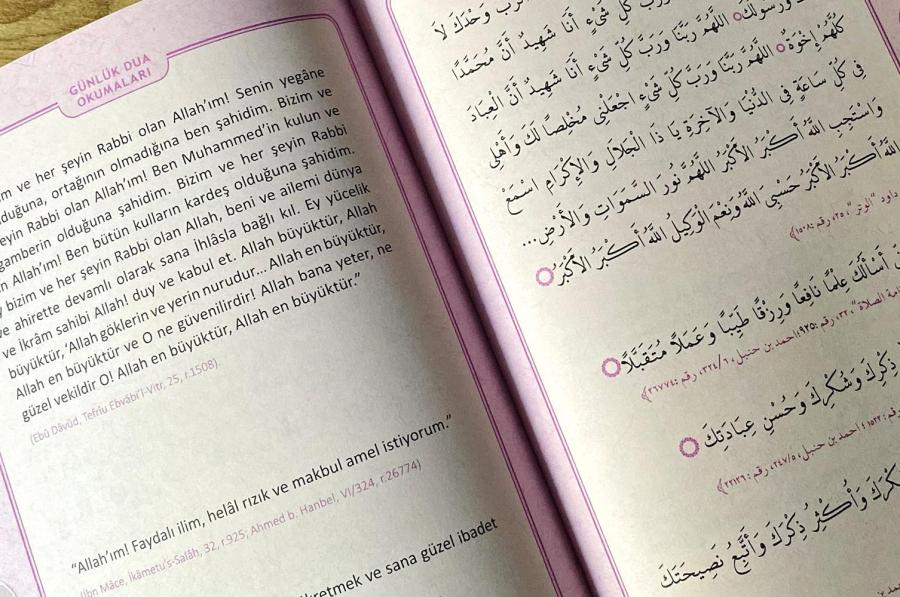 GÜNLÜK DUA
OKUMALARI
ve her şeyin Rabbi olan Allah'ım! Senin yegâne
olduğuna, ortağının olmadığına ben şahidim. Bizim ve
Rabbi olan Allah'ım! Ben Muhammed'in kulun ve
olduğuna şahidim. Bizim ve her şeyin Rabbi
Allah'ım! Ben bütün kulların kardeş olduğuna şahidim.
bizim ve her şeyin Rabbi olan Allah, beni ve ailemi dünya
ve ahirette devamlı olarak sana İhlâsla bağlı kıl. Ey yücelik
ve İkrâm sahibi Allah! duy ve kabul et. Allah büyüktür, Allah
büyüktür, 'Allah göklerin ve yerin nurudur... Allah en büyüktür,
Allah en büyüktür ve O ne güvenilirdir! Allah bana yeter, ne
güzel vekildir O! Allah en büyüktür, Allah en büyüktür."
(Ebû Dâvûd, Tefrîu Ebvâbi'l-Vitr, 25, r.1508).
"Allah'ım! Faydalı ilim, helâl rızık ve makbul amel istiyorum."
(İbn Mâce, İkâmetu's-Salâh, 32, r.925; Ahmed b. Hanbel, VI/324, r.26774)
ve sana güzel ibadet
وَحْدَكَ لَا
اللَّهُمَّ رَبَّنَا وَرَبَّ كُلِّ شَيْءٍ أَنَا شَهِيدٌ أَنَّ مُحَمَّدًا
وَرَسُولُكَ اللَّهُمَّ رَبَّنَا وَرَبَّ كُلِّ شَيْءٍ أَنَا شَهِيدٌ أَنَّ الْعِبَادَ
كُلَّهُمْ إِخْوَةٌ اللَّهُمَّ رَبَّنَا وَرَبَّ كُلِّ شَيْءٍ اجْعَلْنِي مُخْلِصًا لَكَ وَأَهْلِي
فِي كُلِّ سَاعَةٍ فِي الدُّنْيَا وَالْآخِرَةِ يَا ذَا الْجَلَالِ وَالْإِكْرَامِ اسْمَعْ
وَاسْتَجِبِ اللَّهُ أَكْبَرُ الْأَكْبَرُ اللَّهُمَّ نُورَ السَّمَوَاتِ وَالْأَرْضِ...
اللَّهُ أَكْبَرُ الْأَكْبَرُ حَسْبِيَ اللَّهُ وَنِعْمَ الْوَكِيلُ اللَّهُ أَكْبَرُ الْأَكْبَرُ
داود "الوتر"، ٢٥، رقم: ١٥٠٨
أَسْأَلُكَ عِلْمًا نَافِعًا وَرِزْقًا طَيِّبًا وَعَمَلًا مُتَقَبَّلًا
الصلاة"، ٣٢، رقم: ٩٢٥؛ احمد بن حنبل، ٣٢٤/٦، رقم: ٢٦٧٧٤
ذِكْرِكَ وَشُكْرِكَ وَحُسْنِ عِبَادَتِكَ
رقم: ١٥٢٢؛ احمد بن حنبل، ٢٤٧/٥، رقم:
وَأُكْثِرُ ذِكْرَكَ وَأَتَّبِعُ نَصِيحَتَكَ